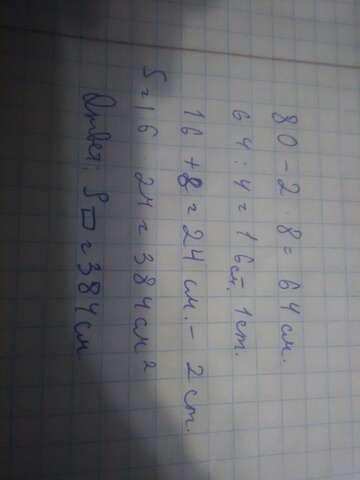 80 - 2 · 8 = 64 см.
64 : 4 = 16 см. 1 ст.
16 + 8 = 24 см. - 2 ст.
S = 16 · 24 = 384 см²
Ответ: S▭ = 384 см